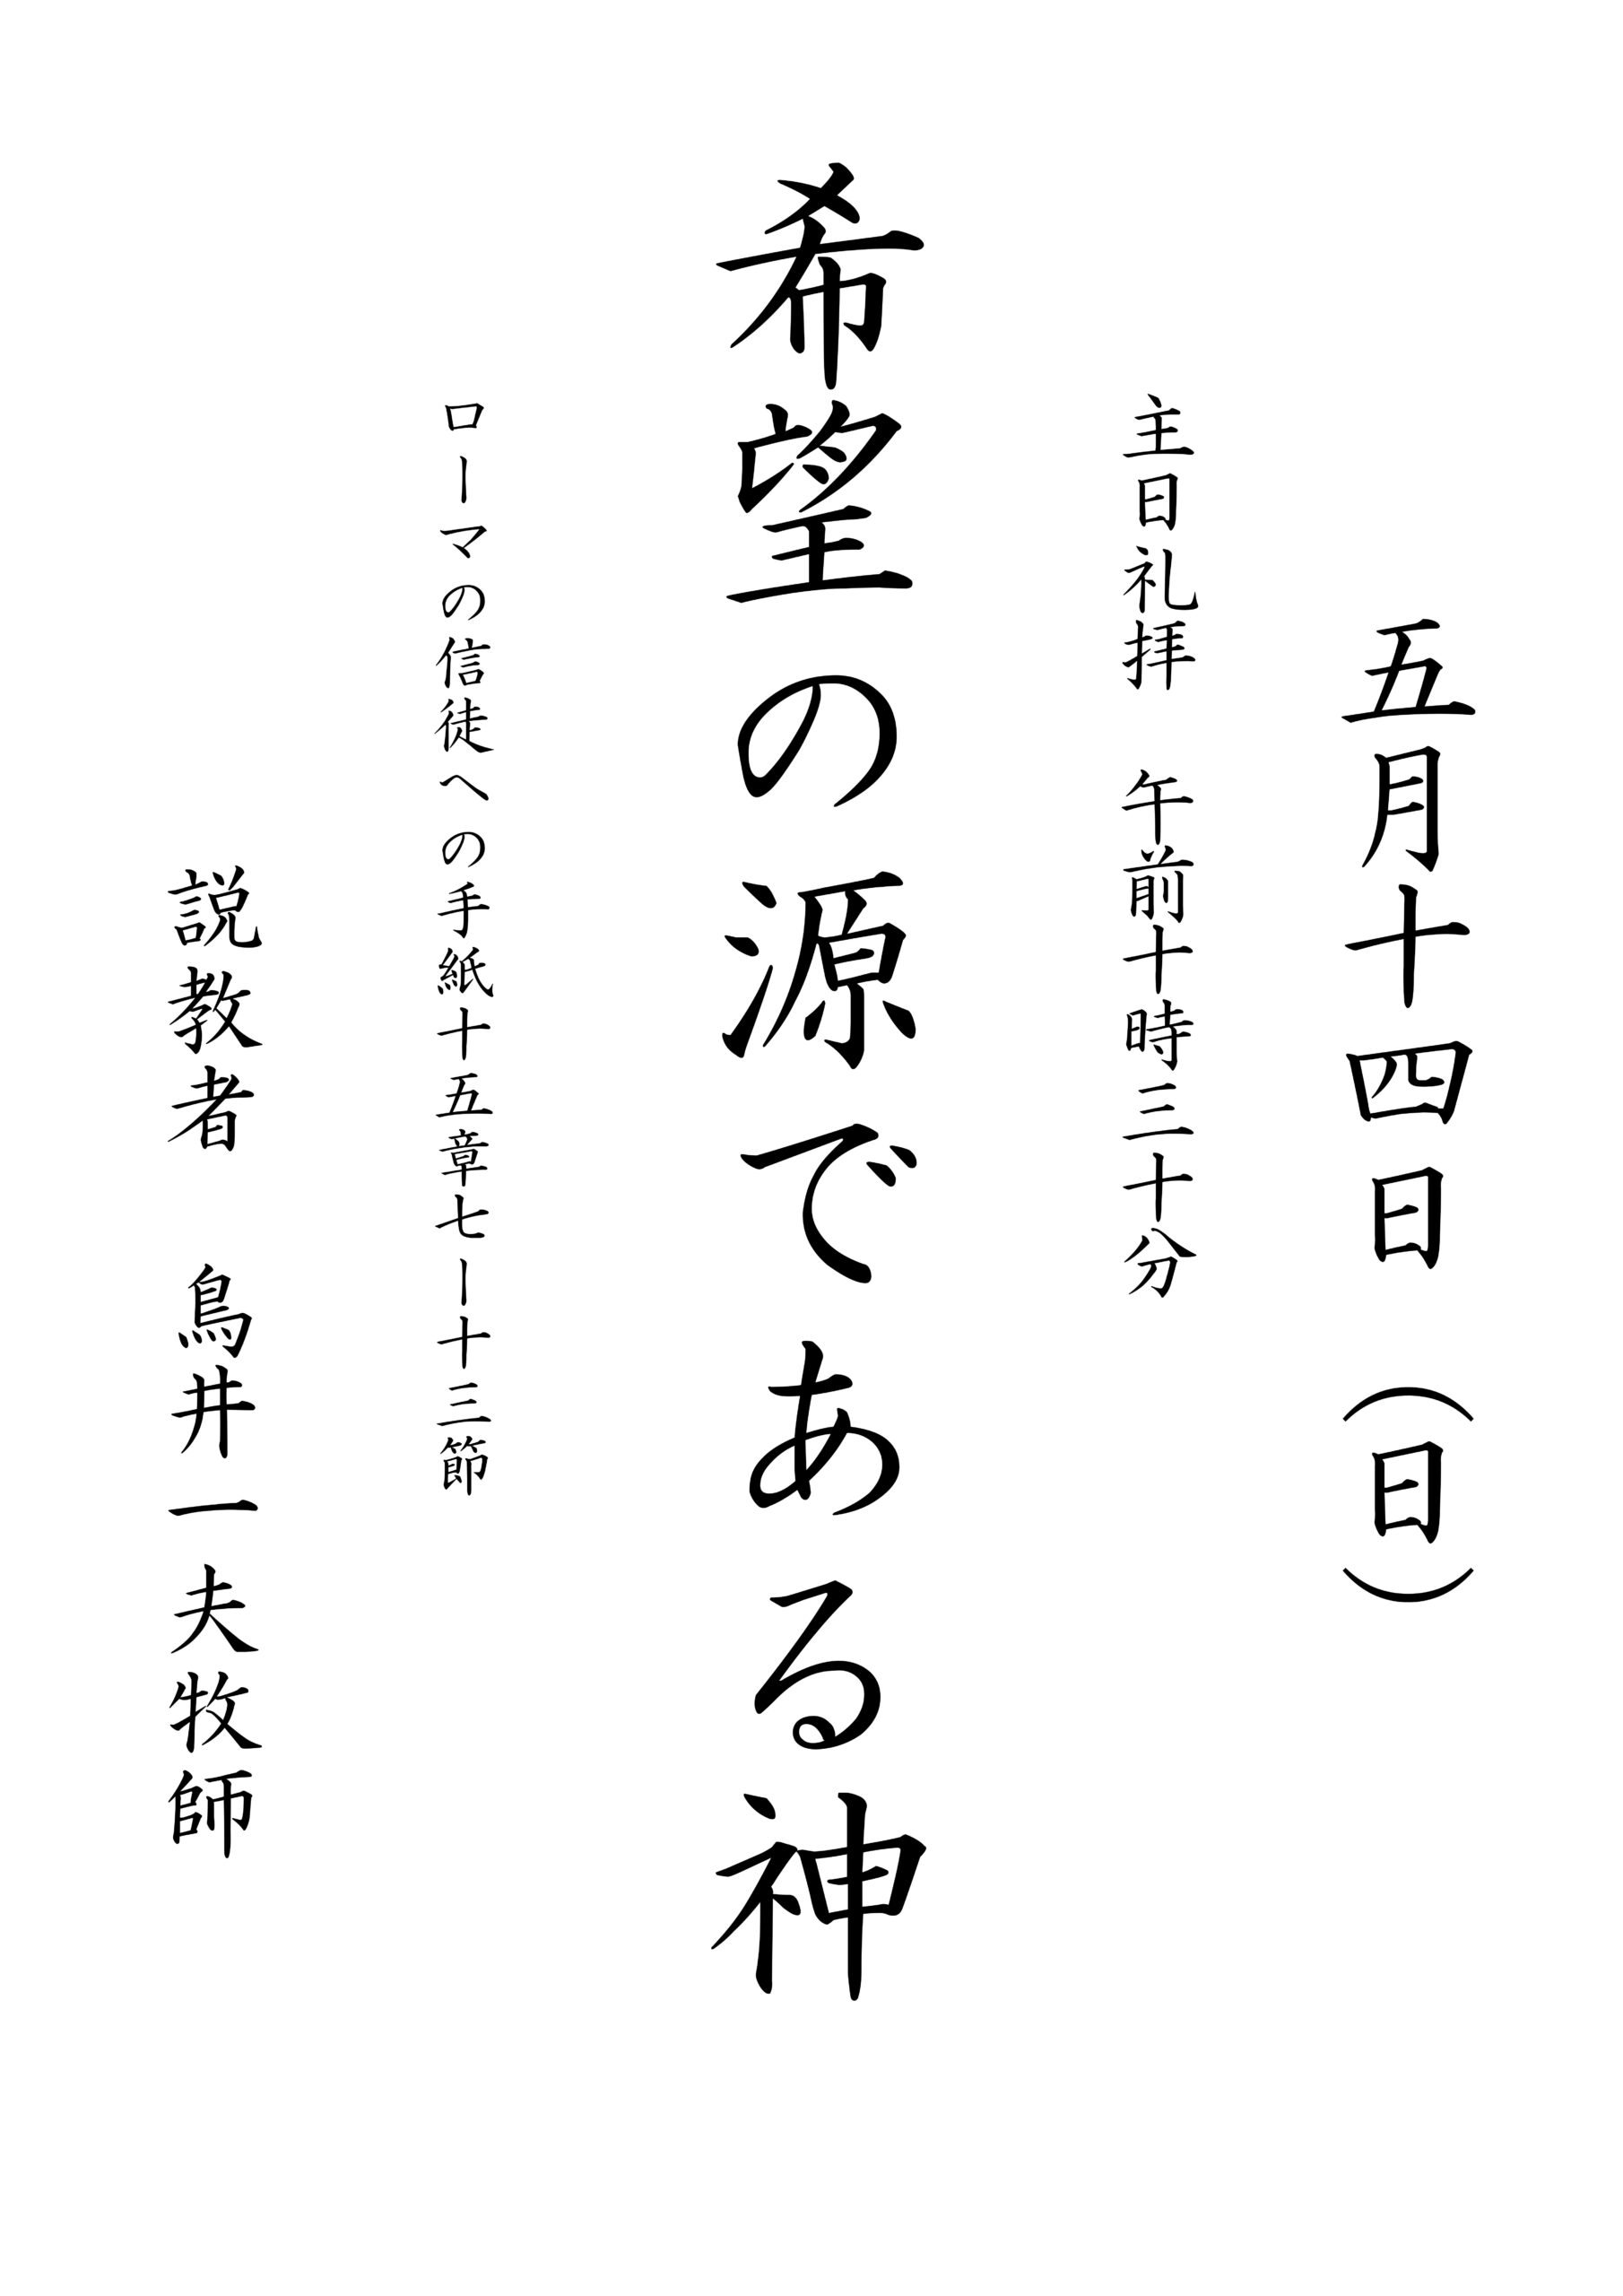 五月十四日（日）
主日礼拝　午前十時三十分
希望の源である神
ローマの信徒への手紙十五章七ー十三節
説教者　烏井一夫牧師